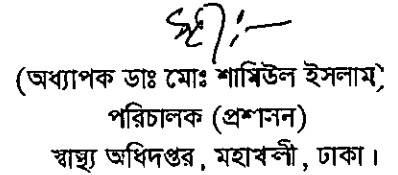 স্বাঃ/-
(অধ্যাপক ডাঃ মোঃ শামিউল ইসলাম)
পরিচালক (প্রশাসন)
স্বাস্থ্য অধিদপ্তর, মহাখালী, ঢাকা।